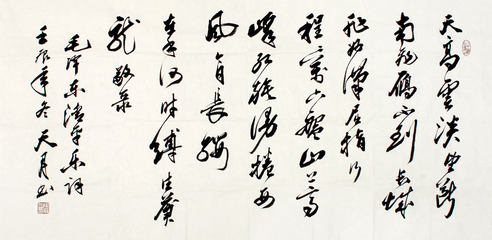 天高雲淡望斷
南飛雁不到長城
非好漢屈指行
程二萬六盤山上高
峰紅旗漫捲西
風今日長纓
在手何時縛住蒼
龍 敬錄
毛澤東清平樂詞
壬辰年冬 天月书